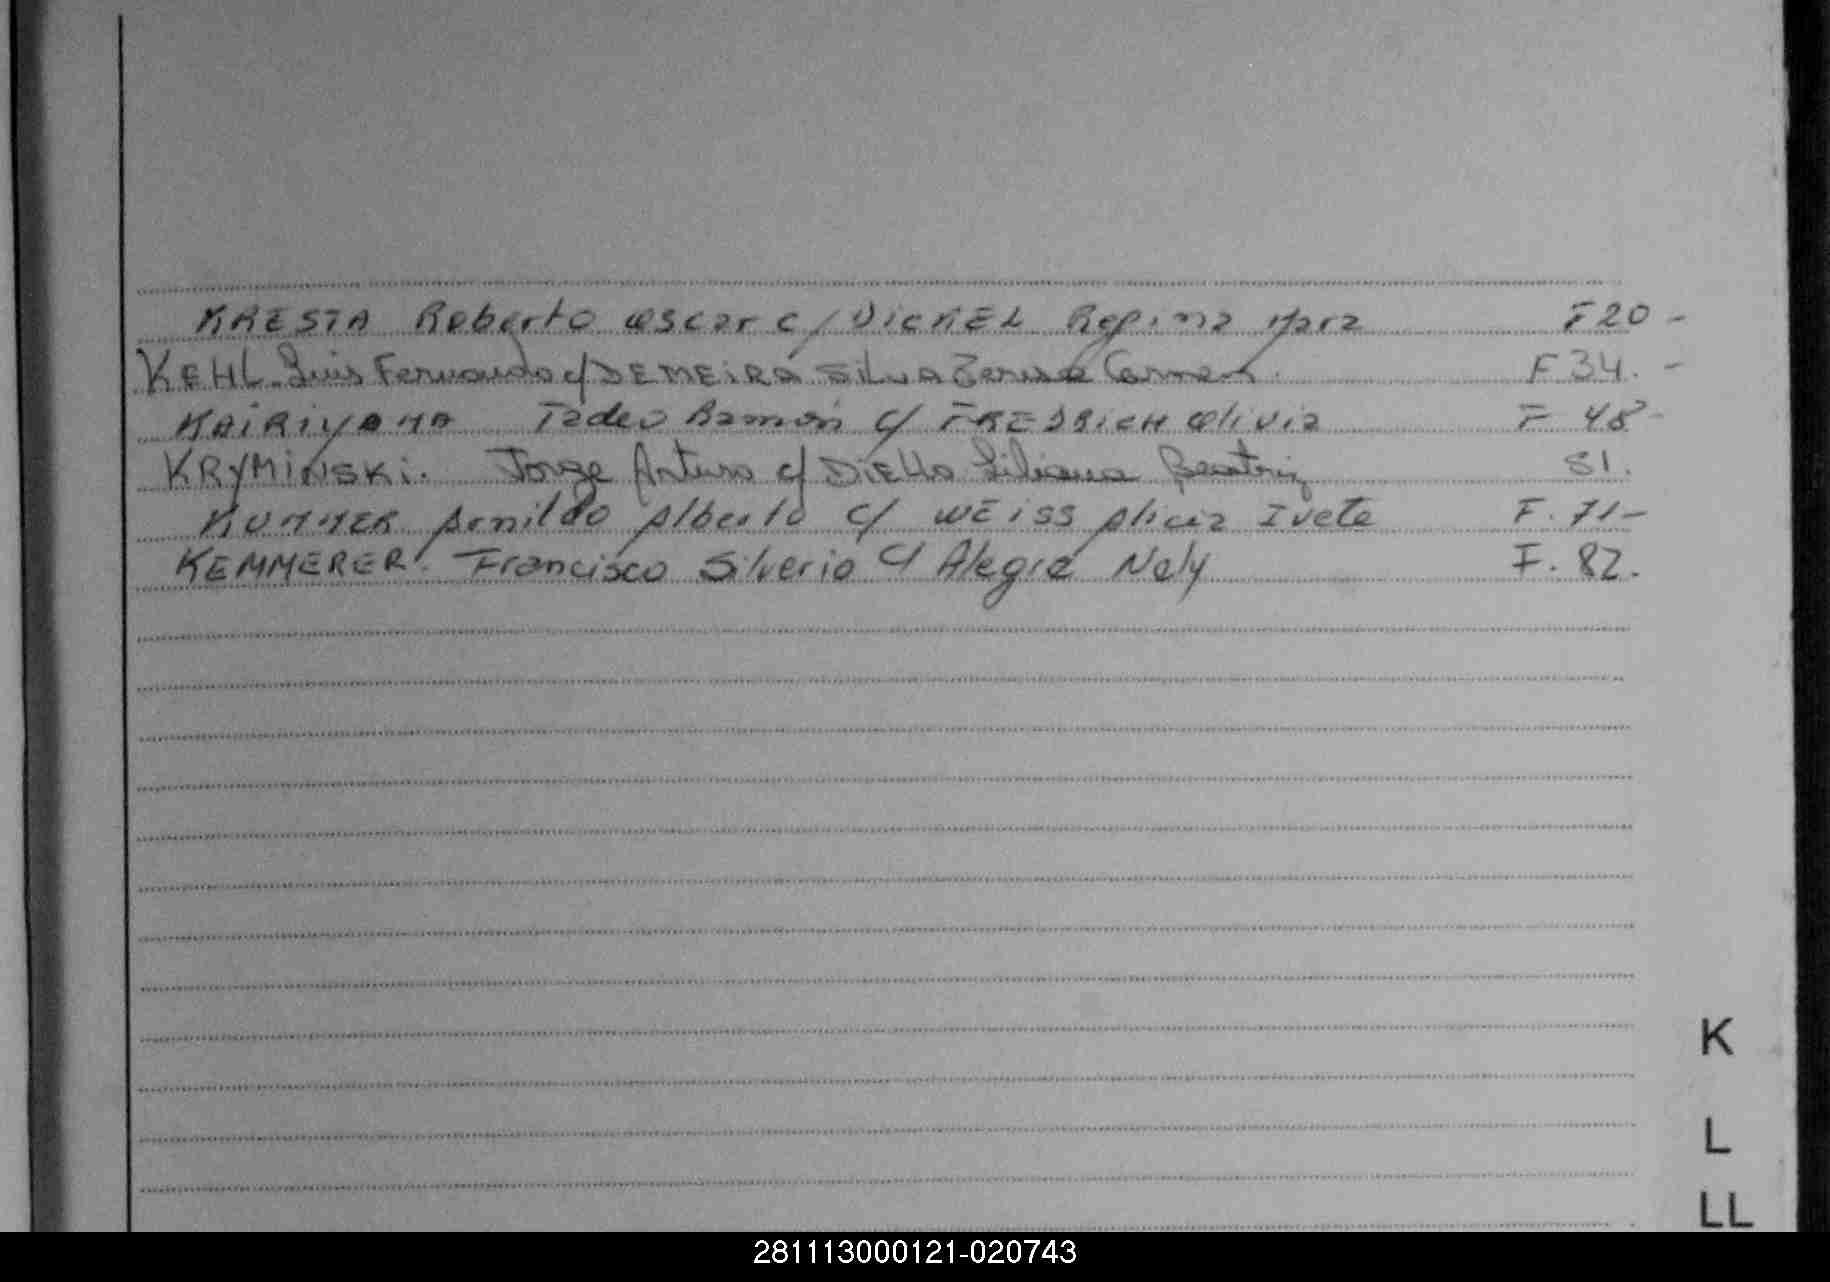 KRESTA Roberto Oscar c/ DICKEL Regina Mara F20 -
KEHL Luis Fernando c/ DEMEIRA SILVA Carmen. F 34. -
KAIRIYAMA Tadeo Ramón c/ FREDRICH Olivia F 48 -
KRYMiNSKi. Jorge Arturo c/ DIELLO Liliana Beatriz 51.
KUMMER Arnildo Alberto c/ WEISS Alicia Ivete F. 71 -
KEMMERER. Francisco Silverio c/ Alegre Nely F. 82.
K
L
LL
281113000121-020743